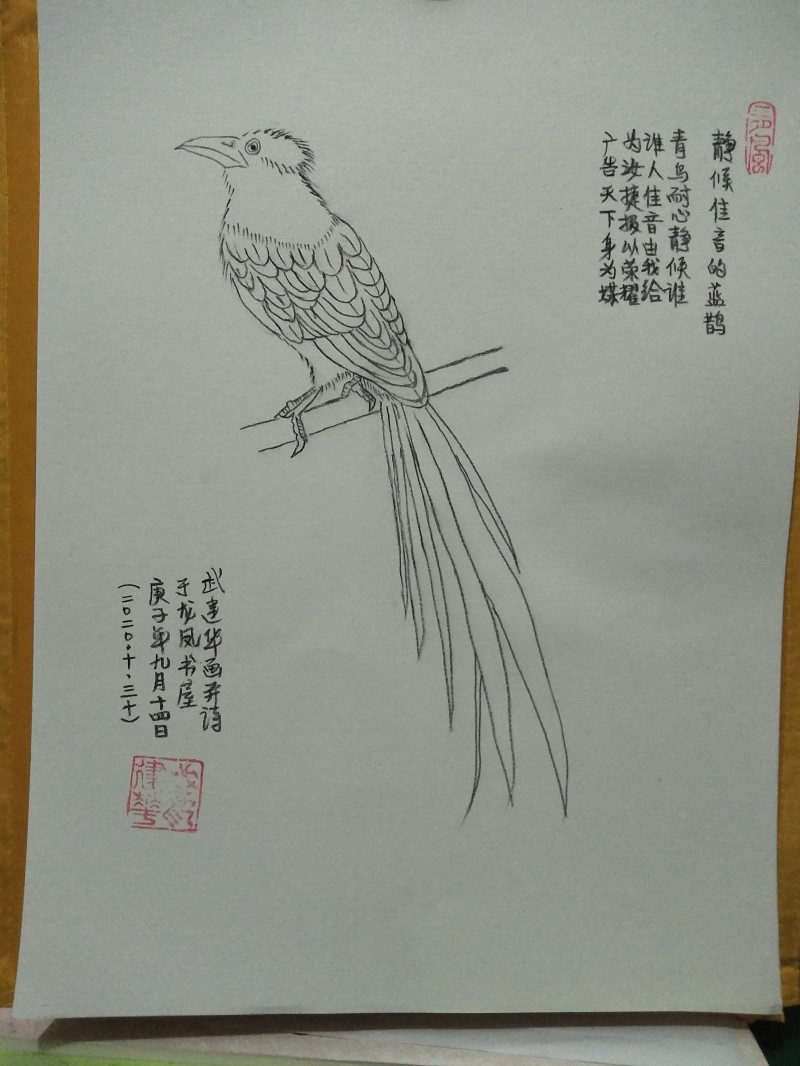 静候佳音的蓝鹊
青鸟耐心静候谁
谁人佳音由我给
为汝捷报以荣耀
广告天下身为媒
武建华画并诗
于龙凤书屋
庚子年九月十四日
(二〇二〇.十.三十)